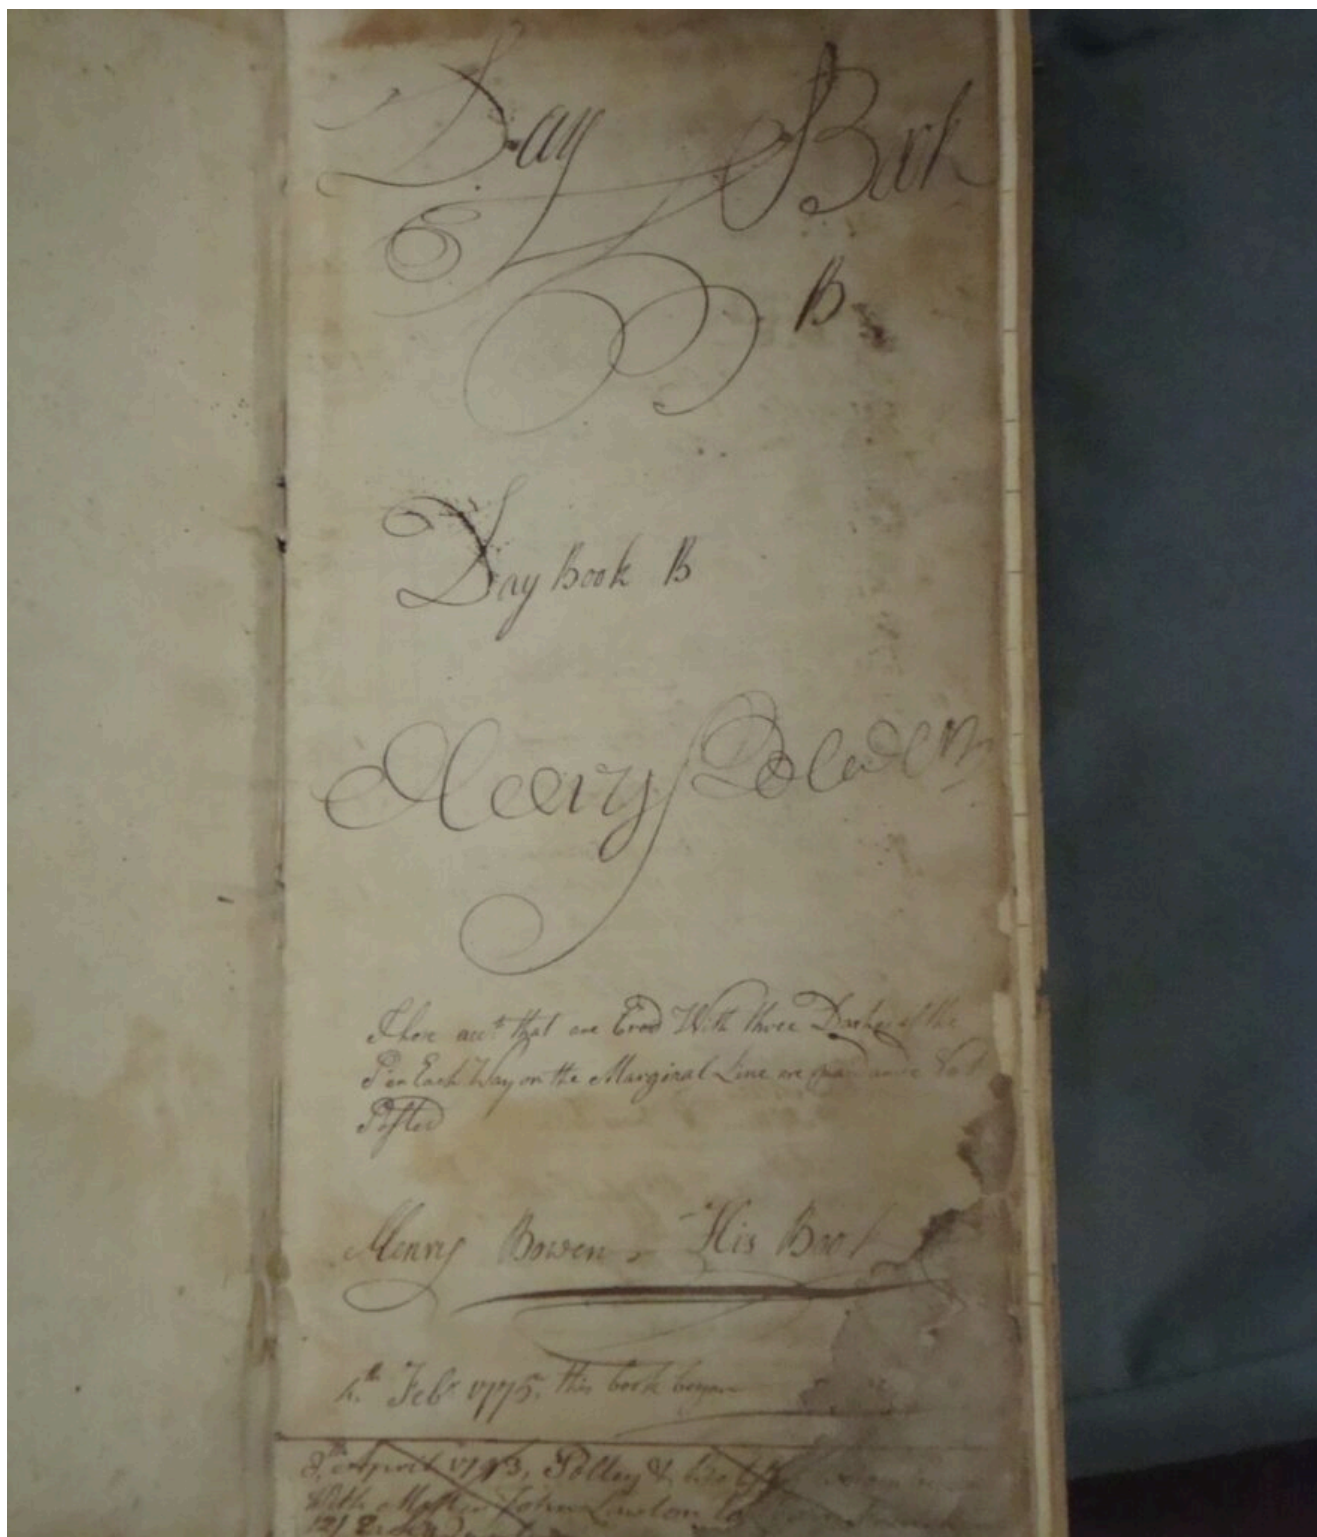 Day Book
B
Day Book B
Henry Bowen
Those acc.ts that are Cros'd With three Dashes of the
Pen Each Way on the Marginal Line are
Posted
Henry Bowen His Book
4.th Feb.r 1775, this book began
April 1793, Polley &
With John